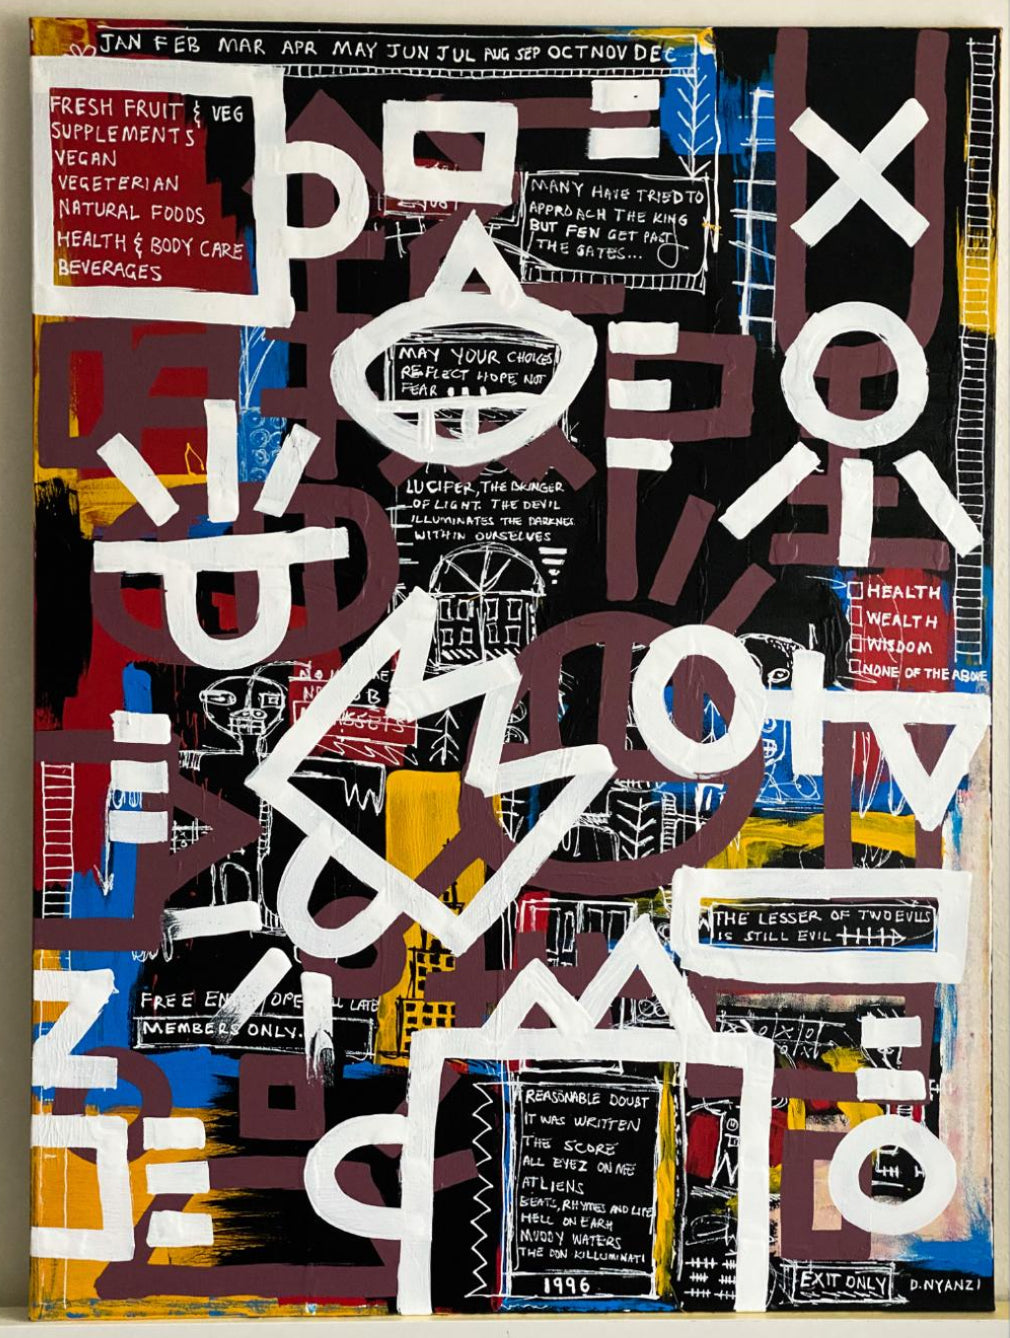 JAN FEB MAR APR MAY JUN JUL AUG SEP OCT NOV DEC
FRESH FRUIT & VEG
SUPPLEMENTS
VEGAN
VEGETERIAN
NATURAL FOODS
HEALTH & BODY CARE
BEVERAGES
MANY HAVE TRIED TO
APPROACH THE KING
BUT FEW GET PAST
THE GATES...
MAY YOUR CHOICES
REFLECT HOPE NOT
FEAR
LUCIFER, THE BRINGER
OF LIGHT. THE DEVIL
ILLUMINATES THE DARKNESS
WITHIN OURSELVES
HEALTH
WEALTH
WISDOM
NONE OF THE ABOVE
THE LESSER OF TWO EVILS
IS STILL EVIL
FREE LATE
MEMBERS ONLY.
REASONABLE DOUBT
IT WAS WRITTEN
THE SCORE
ALL EYEZ ON ME
ATLIENS
BEATS, RHYMES AND LIFE
HELL ON EARH
MUDDY WATERS
THE DON KILLUMINATI
1996
EXIT ONLY D.NYANZI